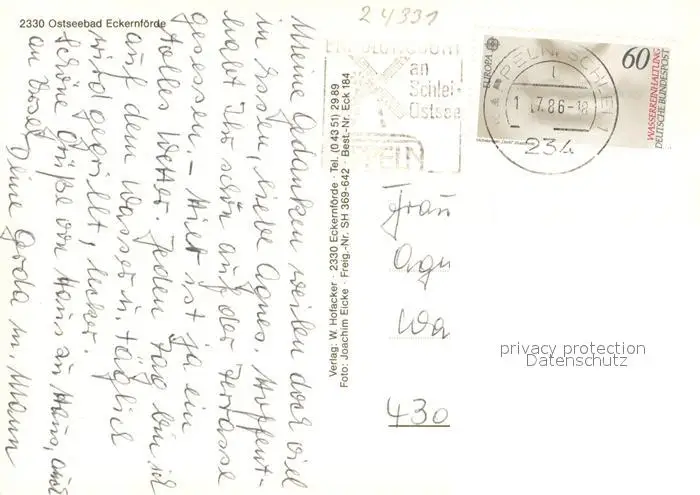 2330 Ostseebad Eckernförde
Meine Gedanken weilen doch viel
in Essen, liebe Agnes. Hoffent-
habt Ihr schön auf der Terrasse
gesessen. – Hier ist ja ein
tolles Wetter. Jeden Tag bin ich
auf dem Wasser u. täglich
wird gegrillt, lecker.
Schöne Grüße von Haus zu Haus, auch
an
Deine Gerda m. Mann
Verlag: W. Hofacker · 2330 Eckernförde · Tel. (0 43 51) 29 89
Foto: Joachim Eicke · Freig.-Nr. SH 369-642 · Best.-Nr. Eck 184
24331
an
Schlei-
Ostsee
KAPPELN, SCHLEI
1
1.7.86-18
234
EUROPA
60
WASSERREINHALTUNG
DEUTSCHE BUNDESPOST
Frau
Agn
Wa
430
privacy protection
Datenschutz